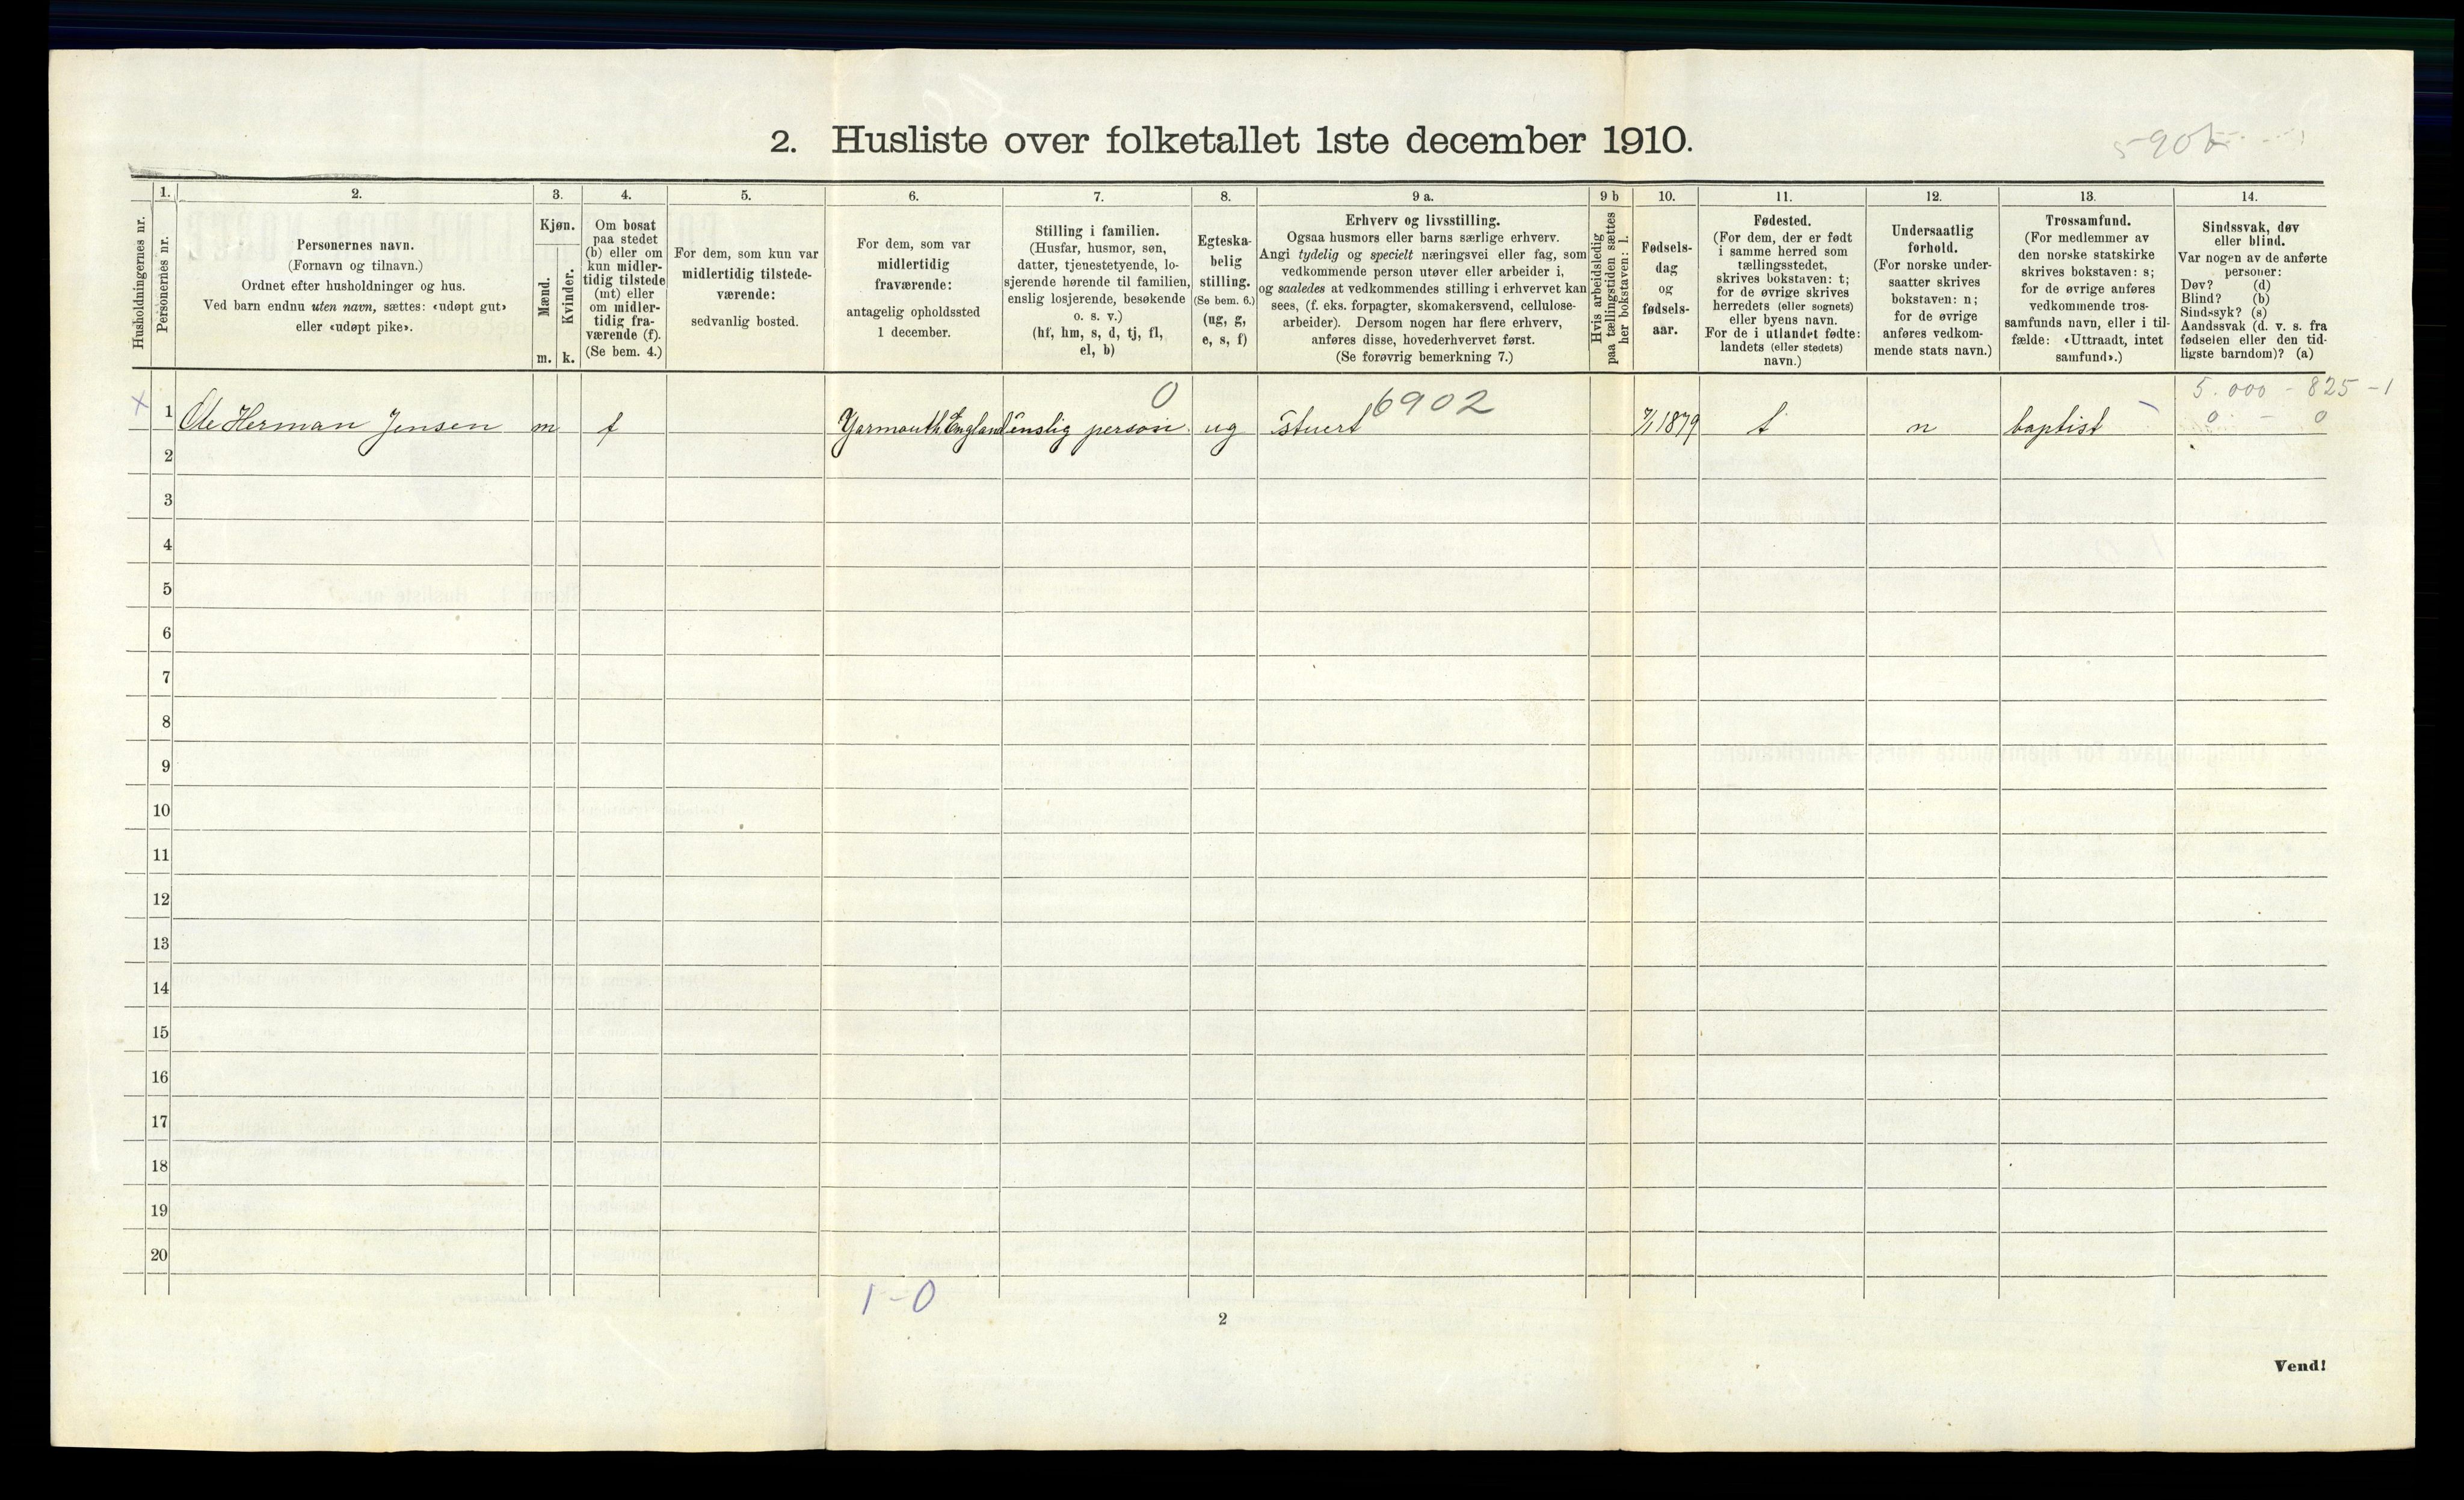 2. Husliste over folketallet 1ste december 1910.
Husholdningernes nr.
1.
Personernes nr.
2.
Personernes navn.
(Fornavn og tilnavn.)
Ordnet efter husholdninger og hus.
Ved barn endnu uten navn, sættes: «udøpt gut»
eller «udøpt pike».
3.
Kjøn.
Mænd.
Kvinder.
m. k.
4.
Om bosat
paa stedet
(b) eller om
kun midler-
tidig tilstede
(mt) eller
om midler-
tidig fra-
værende (f).
(Se bem. 4.)
5.
For dem, som kun var
midlertidig tilstede-
værende:
sedvanlig bosted.
6.
For dem, som var
midlertidig
fraværende:
antagelig opholdssted
1 december.
7.
Stilling i familien.
(Husfar, husmor, søn,
datter, tjenestetyende, lo-
sjerende hørende til familien,
enslig losjerende, besøkende
o. s. v.)
(hf, hm, s, d, tj, fl,
el, b)
8.
Egteska-
belig
stilling.
(Se bem. 6.)
(ug, g,
e, s, f)
9 a.
Erhverv og livsstilling.
Ogsaa husmors eller barns særlige erhverv.
Angi tydelig og specielt næringsvei eller fag, som
vedkommende person utøver eller arbeider i,
og saaledes at vedkommendes stilling i erhvervet kan
sees, (f. eks. forpagter, skomakersvend, cellulose-
arbeider). Dersom nogen har flere erhverv,
anføres disse, hovederhvervet først.
(Se forøvrig bemerkning 7.)
9 b
Hvis arbeidsledig
paa tællingstiden sættes
her bokstaven: l.
10.
Fødsels-
dag
og
fødsels-
aar.
11.
Fødested.
(For dem, der er født
i samme herred som
tællingsstedet,
skrives bokstaven: t;
for de øvrige skrives
herredets (eller sognets)
eller byens navn.
For de i utlandet fødte:
landets (eller stedets)
navn.)
12.
Undersaatlig
forhold.
(For norske under-
saatter skrives
bokstaven: n;
for de øvrige
anføres vedkom-
mende stats navn.)
13.
Trossamfund.
(For medlemmer av
den norske statskirke
skrives bokstaven: s;
for de øvrige anføres
vedkommende tros-
samfunds navn, eller i til-
fælde: «Uttraadt, intet
samfund».)
14.
Sindssvak, døv
eller blind.
Var nogen av de anførte
personer:
Døv? (d)
Blind? (b)
Sindssyk? (s)
Aandssvak (d. v. s. fra
fødselen eller den tid-
ligste barndom)? (a)
0 6902 5.000 - 825 - 1
x 1 Ole Herman Jensen m f Yarmouth England enslig person ug Stuert 7/1 1879 t n baptist 0 - 0
2
3
4
5
6
7
8
9
10
11
12
13
14
15
16
17
18
19
20
1-0
2
Vend!